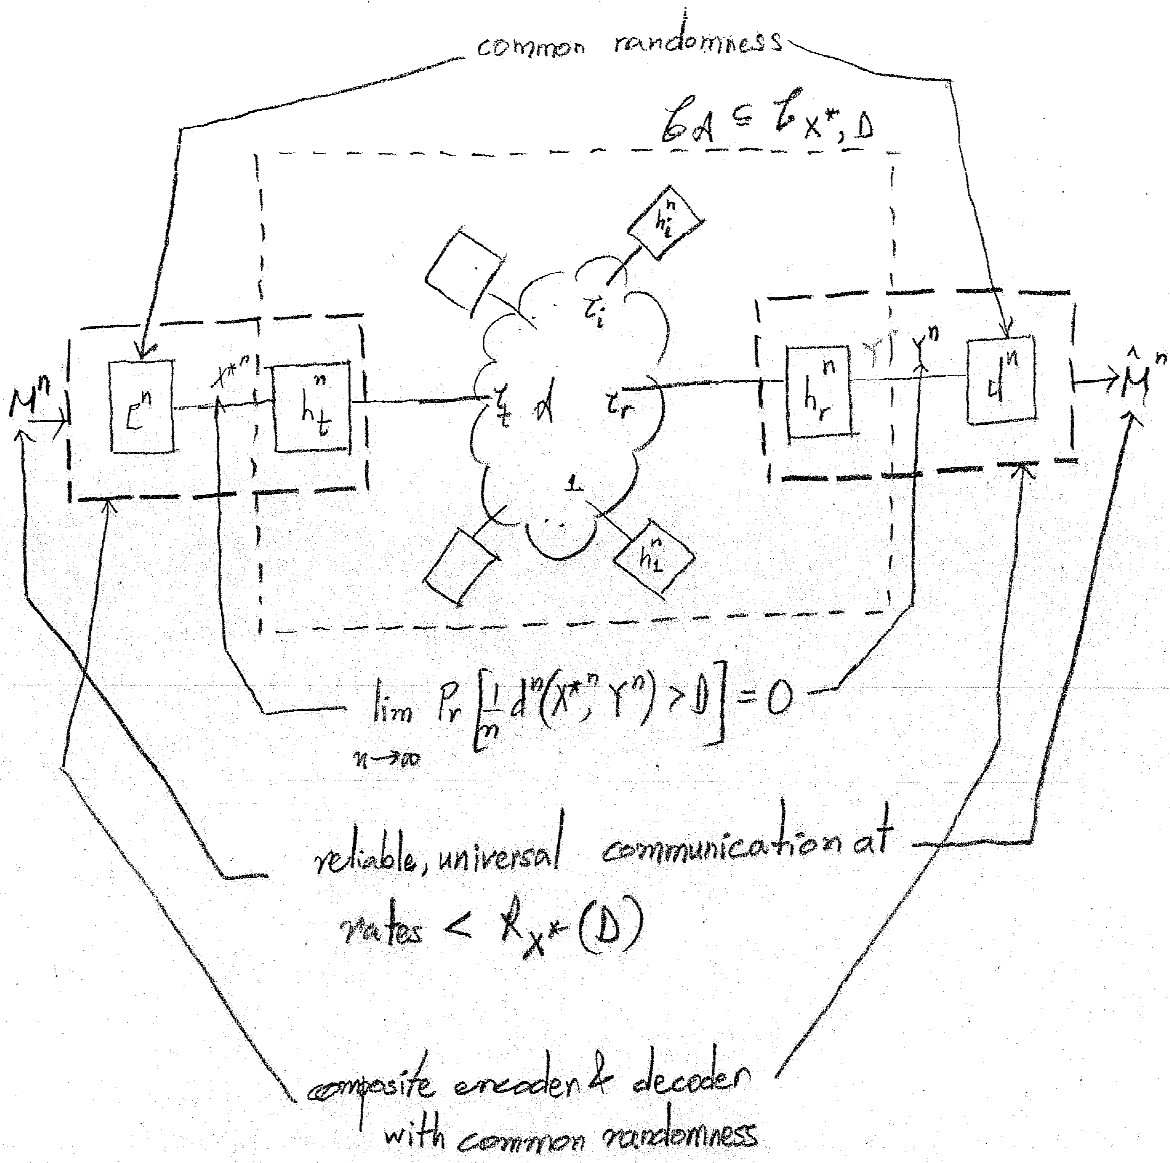 common randomness
𝒞_A ⊆ 𝒞_{X*, D}
h_i^n
τ_i
M^n
E^n
X*^n
h_t^n
τ_t
A
τ_r
h_r^n
Y^n
d^n
M̂^n
1
h_1^n
lim Pr[1/n d^n(X*^n, Y^n) > D] = 0
n→∞
reliable, universal communication at
rates < R_{X*}(D)
composite encoder & decoder
with common randomness